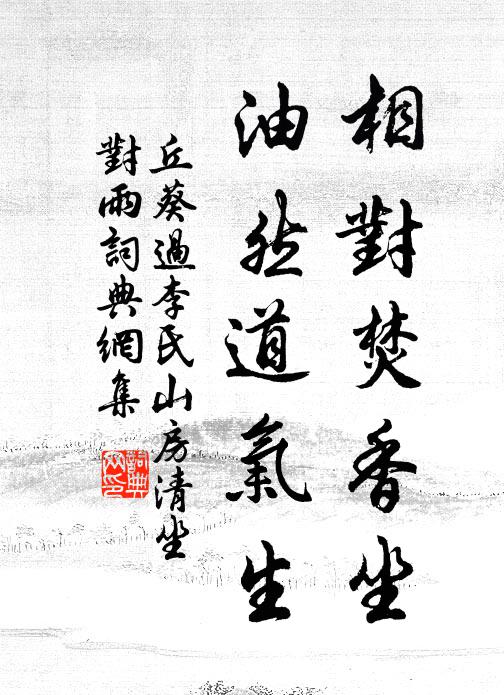 相對焚香坐
油然道氣生
丘葵過李氏山房清坐
對雨詞典網集
詞典網印